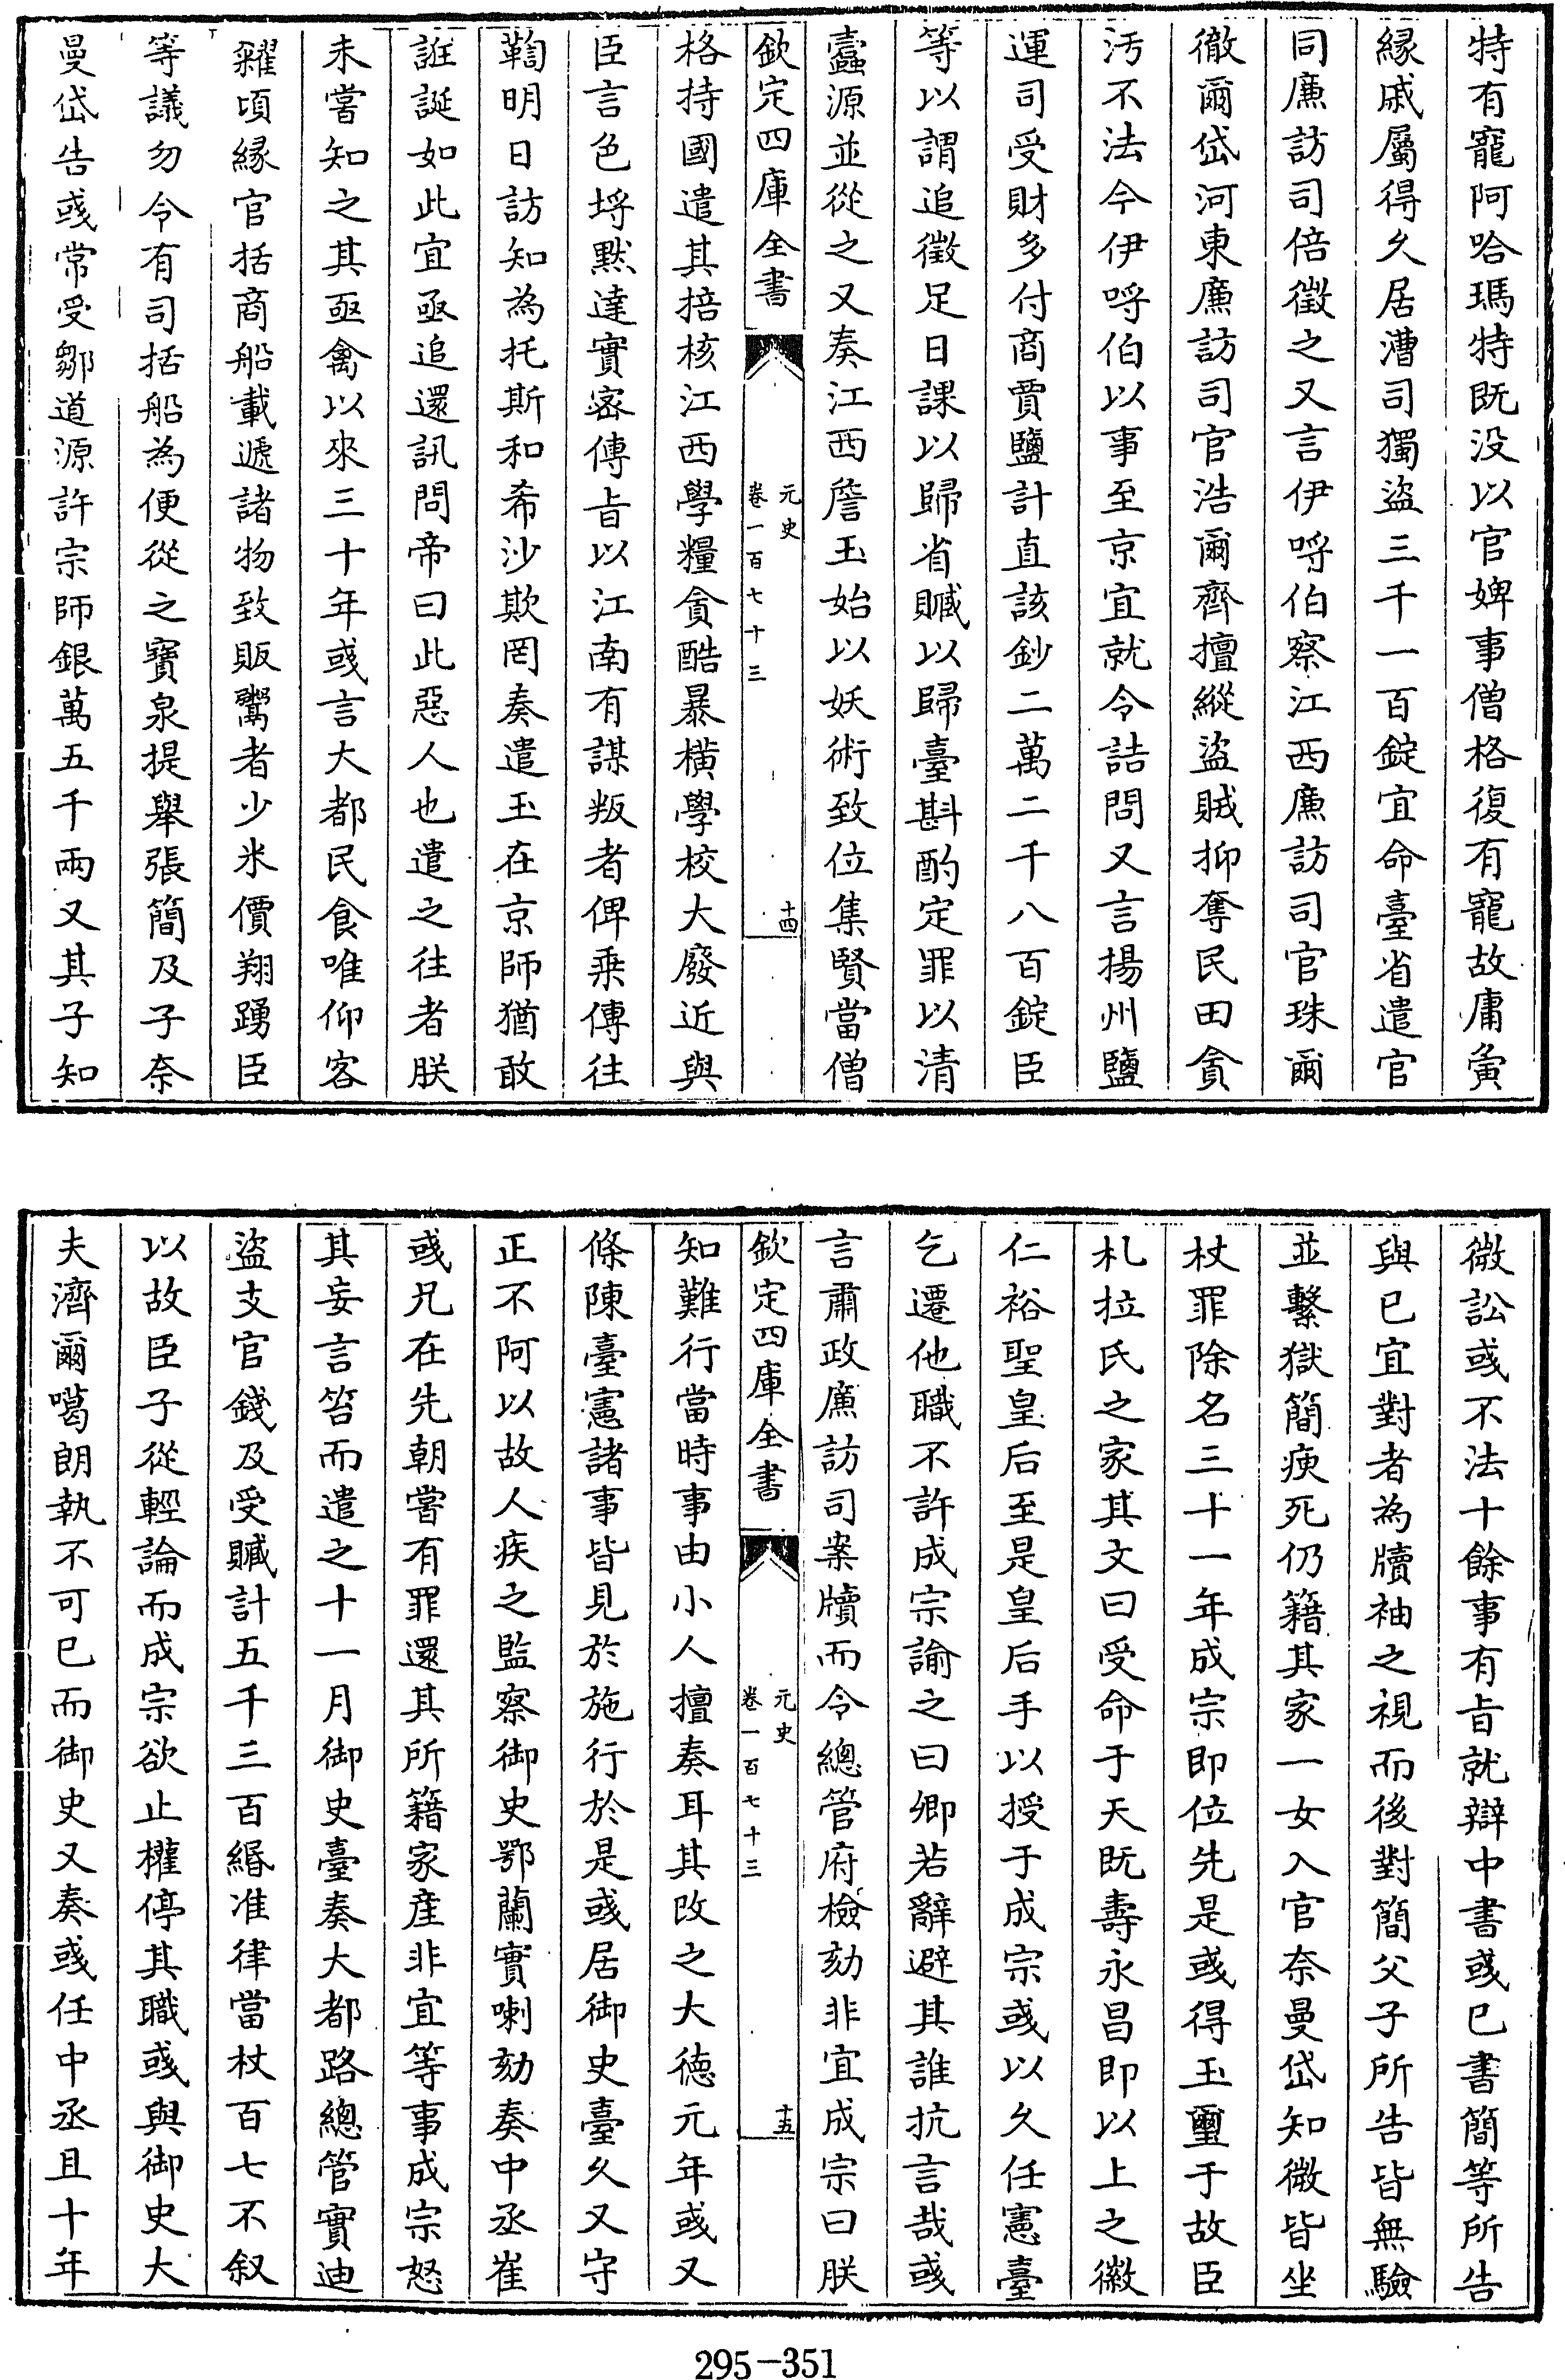 特有寵阿哈瑪特既没以官婢事僧格復有寵故庸夤
緣戚屬得久居漕司獨盜三千一百錠宜命臺省遣官
同廉訪司倍徵之又言伊哷伯察江西廉訪司官珠爾
徹爾岱河東廉訪司官浩爾齊擅縱盜賊抑奪民田貪
汚不法今伊哷伯以事至京宜就令詰問又言揚州鹽
運司受財多付商賈鹽計直該鈔二萬二千八百錠臣
等以謂追徵足日課以歸省贓以歸臺斟酌定罪以清
蠧源並從之又奏江西詹玉始以妖術致位集賢當僧
欽定四庫全書
元史
卷一百七十三
十四
格持國遣其掊核江西學糧貪酷暴横學校大廢近與
臣言色埒默達實密傳㫖以江南有謀叛者俾乗傳往
鞫明日訪知為托斯和希沙欺罔奏遣玉在京師猶敢
誑誕如此宜亟追還訊問帝曰此惡人也遣之往者朕
未嘗知之其亟禽以來三十年彧言大都民食唯仰客
糴頃緣官括商船載遞諸物致販鬻者少米價翔踴臣
等議勿令有司括船為便從之寶泉提舉張簡及子奈
曼岱告彧常受鄒道源許宗師銀萬五千兩又其子知
微訟彧不法十餘事有㫖就辯中書彧已書簡等所告
與已宜對者為牘袖之視而後對簡父子所告皆無驗
並繫獄簡瘐死仍籍其家一女入官奈曼岱知微皆坐
杖罪除名三十一年成宗即位先是彧得玉璽于故臣
札拉氏之家其文曰受命于天既壽永昌即以上之徽
仁裕聖皇后至是皇后手以授于成宗彧以久任憲臺
乞遷他職不許成宗諭之曰卿若辭避其誰抗言哉彧
言肅政廉訪司案牘而令總管府檢劾非宜成宗曰朕
欽定四庫全書
元史
卷一百七十三
十五
知難行當時事由小人擅奏耳其改之大德元年彧又
條陳臺憲諸事皆見於施行於是彧居御史臺久又守
正不阿以故人疾之監察御史鄂蘭實喇劾奏中丞崔
彧兄在先朝嘗有罪還其所籍家産非宜等事成宗怒
其妄言笞而遣之十一月御史臺奏大都路總管實迪
盜支官錢及受贓計五千三百緡准律當杖百七不叙
以故臣子從輕論而成宗欲止權停其職彧與御史大
夫濟爾噶朗執不可已而御史又奏彧任中丞且十年
295-351